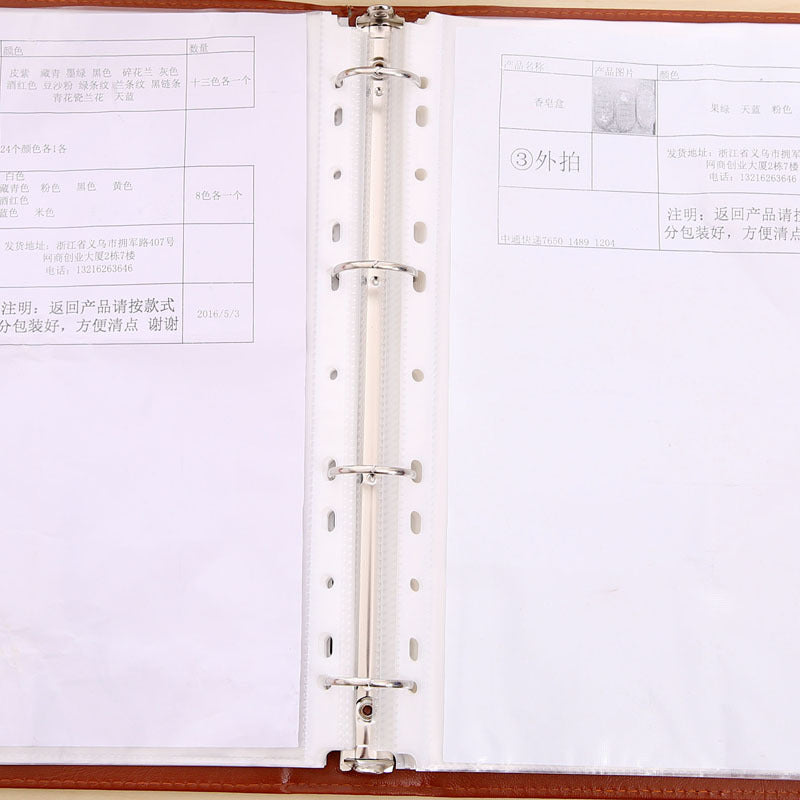 颜色 数量
皮紫 藏青 墨绿 黑色 碎花兰 灰色
酒红色 豆沙粉 绿条纹 兰条纹 黑链条
青花瓷兰花 天蓝
十三色各一个
24个颜色各1各
白色
藏青色 粉色 黑色 黄色
酒红色
蓝色 米色
8色各一个
发货地址：浙江省义乌市拥军路407号
网商创业大厦2栋7楼
电话：13216263646
注明：返回产品请按款式
分包装好，方便清点 谢谢
2016/5/3
产品名称 产品图片 颜色
香皂盒
果绿 天蓝 粉色
③外拍
发货地址：浙江省义乌市拥军
网商创业大厦2栋7楼
电话：13216263646
注明：返回产品请按
分包装好，方便清点
中通快递7650 1489 1204